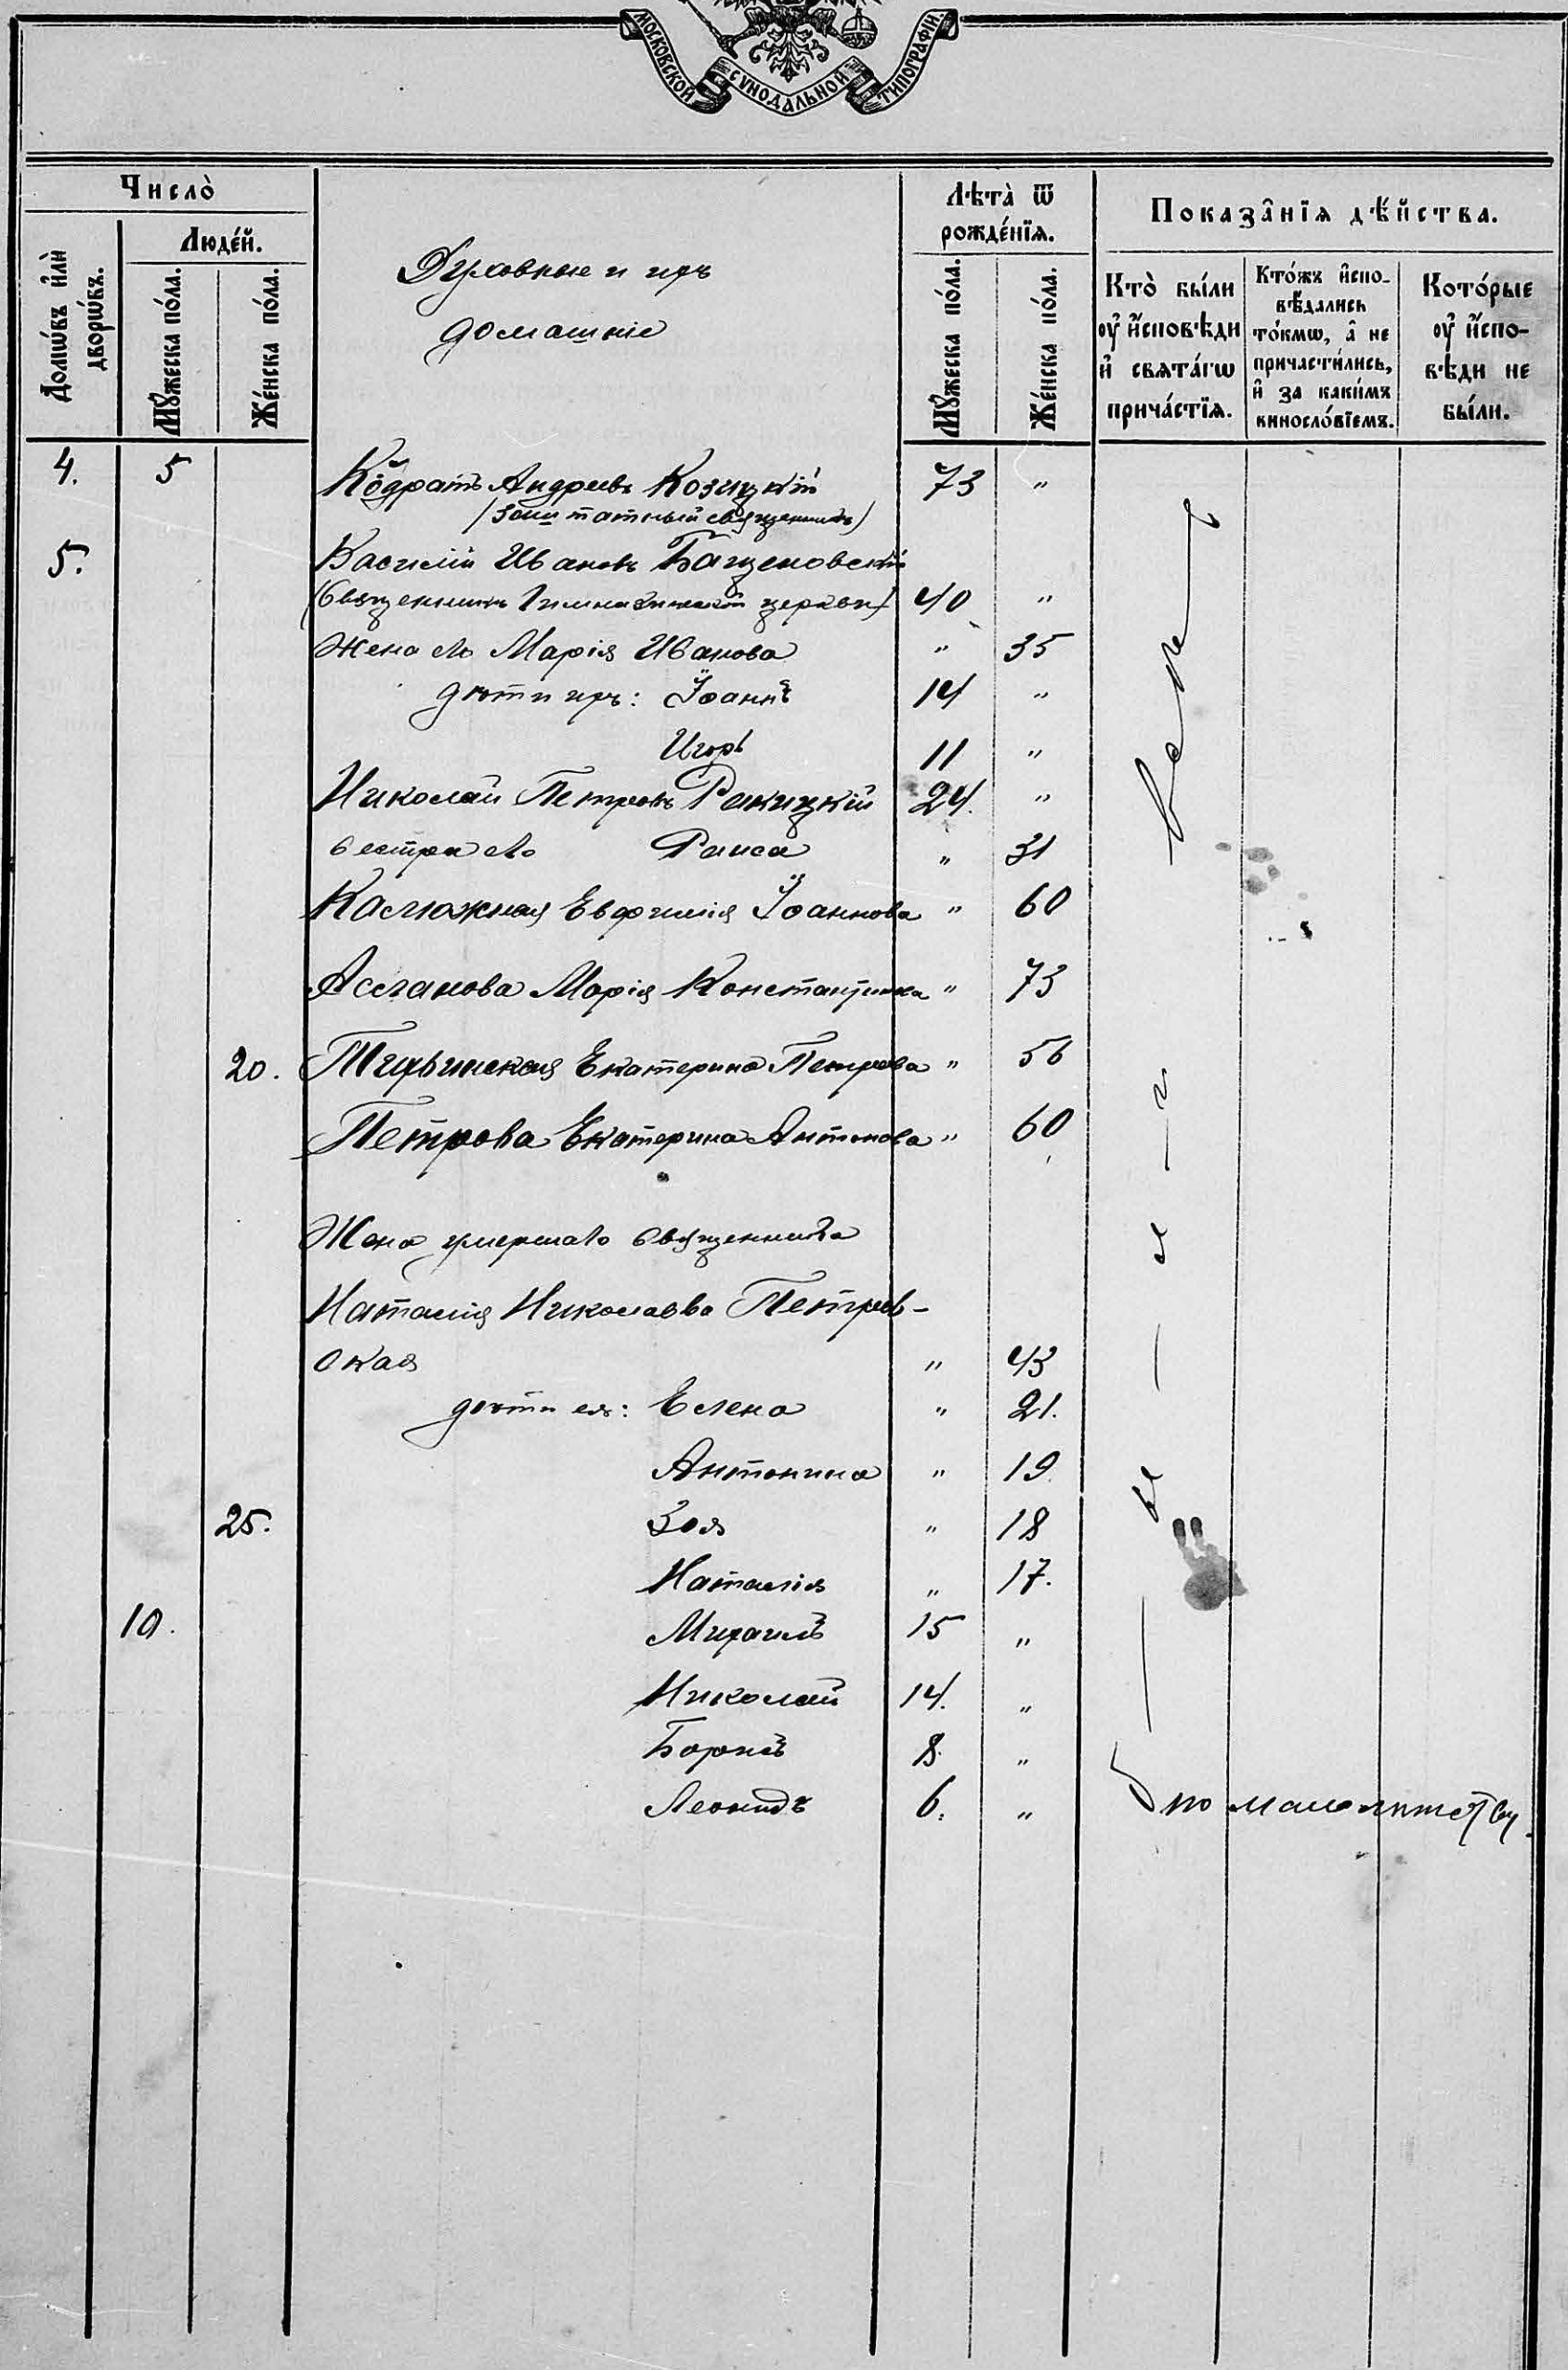 МОСКОВСКОЙ СѴНОДАЛЬНОЙ ТИПОГРАФІИ.
Число̀
Домѡ́въ и҆лѝ дворѡ́въ.
Люде́й.
Мꙋ́жеска по́ла.
Же́нска по́ла.
Духовные и ихъ
домашніе
Лѣта̀ ѿ рожде́нїѧ.
Мꙋ́жеска по́ла.
Же́нска по́ла.
Показа̑нїѧ дѣ́йства.
Кто̀ бы́ли ᲂу҆ и҆́сповѣди и҆ свѧта́гѡ прича́стїѧ.
Кто́жъ и҆спо-
вѣ́дались
то́кмѡ, а҆ не
причасти́лись,
и҆ за каки́мъ
винносло́вїемъ.
Кото́рые
ᲂу҆ и҆́спо-
вѣди не
бы́ли.
4. 5 Кодратъ Андреевъ Козицкій 73 "
(заштатный священникъ)
5. Василій Ивановъ Бащеновскій
(Священникъ Гимназической церкви) 40 "
Жена его Марія Иванова " 35
дѣти ихъ: Іоаннъ 14 "
Игорь 11 "
Николай Петровъ Ракицкій 24. "
Сестра его Раиса " 31
Калюжная Евфимія Іоаннова " 60
Марія " 73
20. Екатерина Петрова " 56
Петрова Екатерина Антонова " 60
Жена умершаго священника
Наталія Николаева Петров-
ская " 43
дѣти ея: Елена " 21.
Антонина " 19
25. Зоя " 18
Наталія " 17.
10. Михаилъ 15 "
Николай 14. "
Борисъ 8. "
Леонидъ 6. " по малолѣтству.